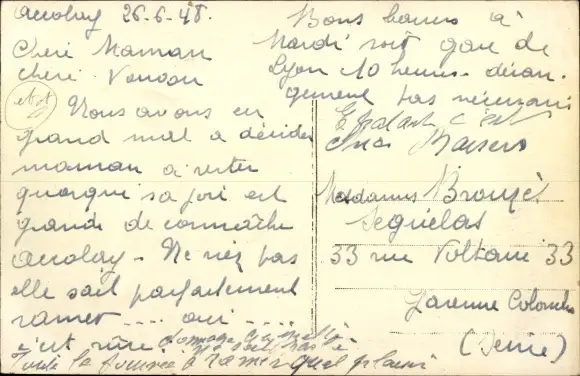 Accolay 26-6-48.
Cheri Maman
cheri Tonton
Nous avons eu
grand mal a décider
maman a rester
quoique sa joie est
grande de connaître
Accolay - Ne riez pas
elle sait parfaitement
ramer .... oui ....
c'est rire dommage
Toute la journée à ramer quel plaisir
Bons baisers à
Mardi soit gare de
Lyon 10 heures - déran-
gement pas nécessaire
Epatant c'est
Baisers
Mesdames Brouzès
Seguélas
33 rue Voltaire 33
Garenne Colombes
(Seine)